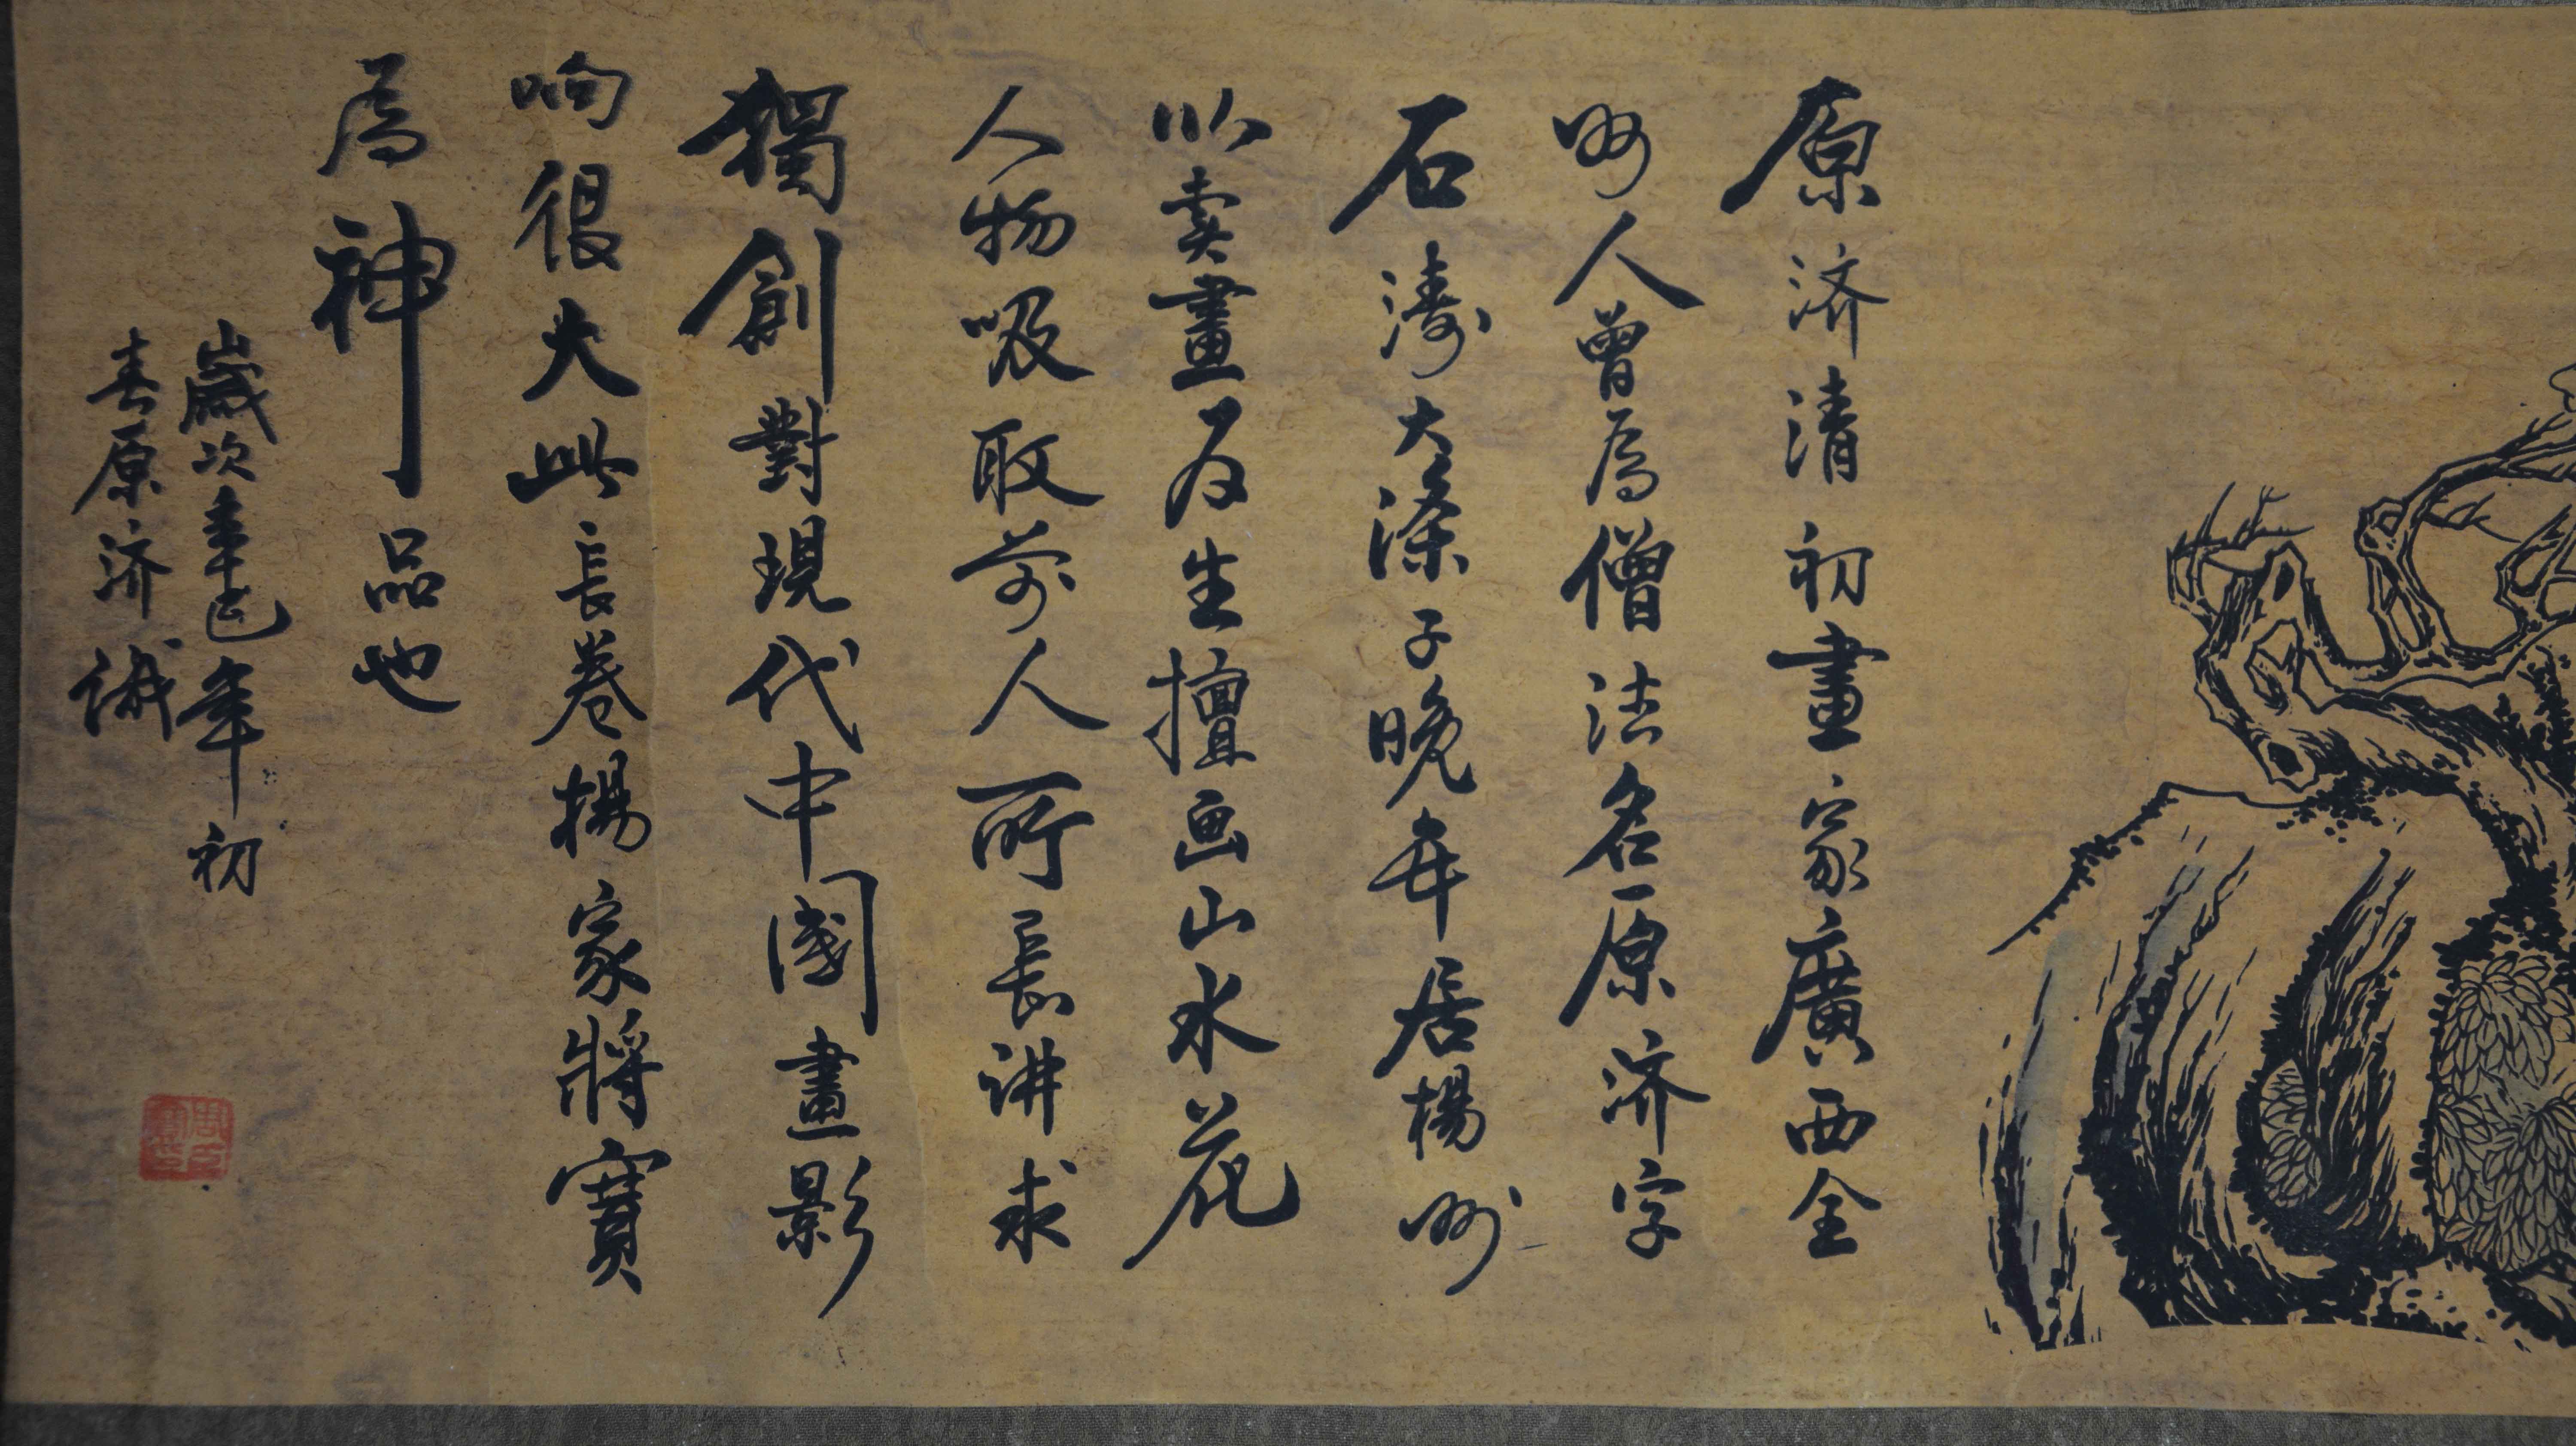 原济清初畫家廣西全
州人曾為僧法名原济字
石濤大滌子晚年居楊州
以卖畫为生擅画山水花
人物吸取前人所長讲求
獨創對現代中國畫影
响很大此長卷楊家將寶
為神品也
歲次辛巳年初
春原济识